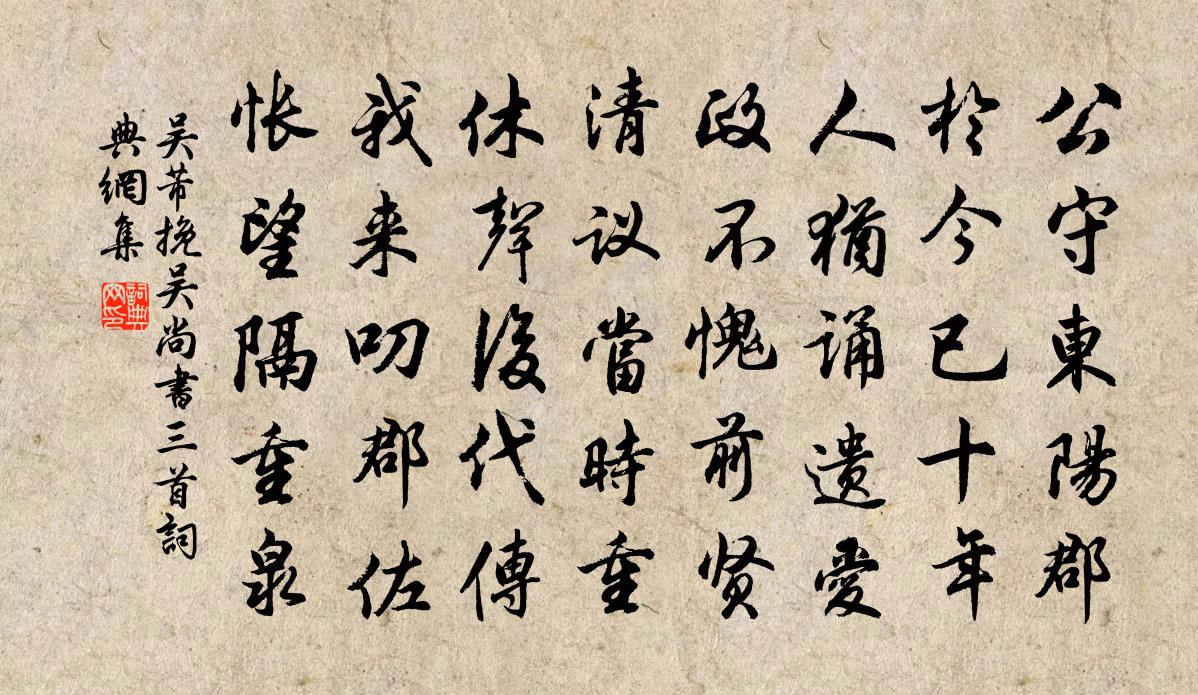 公守東陽郡
於今已十年
人猶誦遺愛
政不愧前贤
清议當時重
休聲後代傳
我来叨郡佐
怅望隔重泉
吴芾挽吴尚書三首詞
典網集
詞典
网印